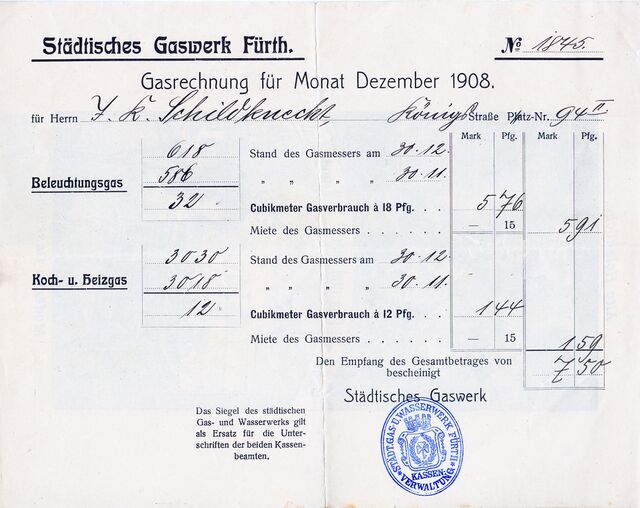 Städtisches Gaswerk Fürth.
No 1845.
Gasrechnung für Monat Dezember 1908.
für Herrn J. K. Schildknecht, Königs Straße Platz-Nr. 94 II
Mark Pfg. Mark Pfg.
618 Stand des Gasmessers am 30.12.
Beleuchtungsgas 586 „ „ „ „ 30.11.
32 Cubikmeter Gasverbrauch à 18 Pfg. . . . 5 76
Miete des Gasmessers . . . . . . — 15 5 91
3030 Stand des Gasmessers am 30.12.
Koch- u. Heizgas 3018 „ „ „ „ 30.11.
12 Cubikmeter Gasverbrauch à 12 Pfg. . . . 1 44
Miete des Gasmessers . . . . . . — 15 1 59
Den Empfang des Gesamtbetrages von 7 50
bescheinigt
Städtisches Gaswerk
Das Siegel des städtischen
Gas- und Wasserwerks gilt
als Ersatz für die Unter-
schriften der beiden Kassen-
beamten.
STÄDT. GAS- U. WASSERWERK FÜRTH
KASSEN-
VERWALTUNG